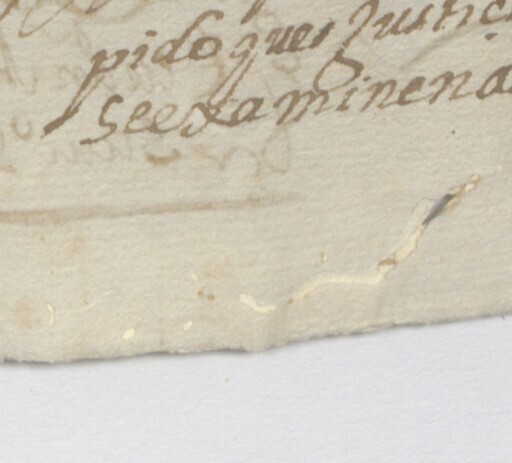 pido que es Justici
Se examinen a